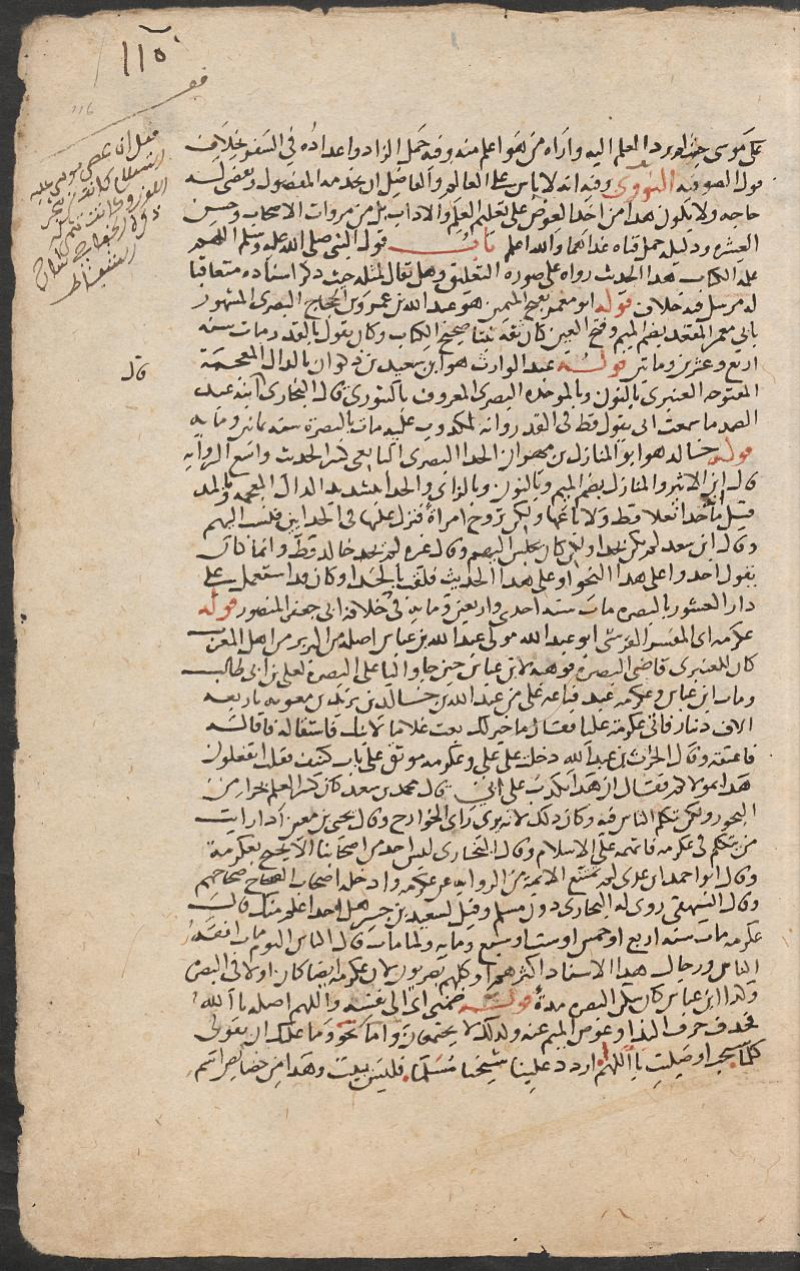 ١١٥
116
على موسى حيث لم يرد العلم اليه واراه من هو اعلم منه وفيه حمل الزاد واعداده في السفر بخلاف
قول الصوفيه النووي وفيه انه لا باس على العالم والفاضل ان يخدمه المفضول ويقضي له
حاجه ولا يكون هذا من اخذ العوض على تعليم العلم والاداب بل من مروات الاصحاب وحسن
العشره ودليله حمل فتاه غداهما والله اعلم باب قول النبي صلى الله عليه وسلم اللهم
علمه الكتاب هذا الحديث رواه على صوره التعليق وهل يقال لمثله حيث ذكر اسناده متعاقبا
له مرسل فيه خلاف قوله ابو معمر بفتح الميمين هو عبد الله بن عمرو بن الحجاج البصري المشهور
بابي معمر المقعد بضم الميم وفتح العين كان ثقة ثبتا صحيح الكتاب وكان يقول بالقدر مات سنه
اربع وعشرين وماتين قوله عبد الوارث هو ابن سعيد بن ذكوان بالذال المعجمة
المفتوحه العنبري بالنون وبالموحده البصري المعروف بالتنوري قال البخاري قال ابنه عبد
الصمد ما سمعت ابي يقول قط في القدر وانه لمكذوب عليه مات بالبصرة سنه ثمانين ومايه
قوله خالد هو ابو المنازل بن مهران الحذا البصري التابعي كثير الحديث واسع الروايه
قال ابن الاثير والمنازل بضم الميم وبالنون وبالزاي والحذا بتشديد الذال المعجمه وبالمد
قيل ما حذا نعلا قط ولا باعها ولكن تزوج امراة فنزل عليها في الحذاين فنسب اليهم
وقال ابن سعد لم يكن بحذا ولكن كان يجلس اليهم وقال غيره لم يحذ خالد قط وانما كان
يقول احذوا على هذا النحو او على هذا الحديث فلقب بالحذا وكان قد استعمل على
دار العشور بالبصره مات سنه احدى واربعين ومايه في خلافة ابي جعفر المنصور قوله
عكرمه اي المفسر القرشي ابو عبد الله مولى عبد الله بن عباس اصله من البربر من اهل المغرب
كان للعنبري قاضي البصره فوهبه لابن عباس حين جا واليا على البصرة لعلي بن ابي طالب
ومات ابن عباس وعكرمه عبد فباعه علي من عبد الله بن خالد بن يزيد بن معويه باربعه
الاف دينار فاتى عكرمه عليا فقال ما خير لك بعت علم ابيك فاستقاله فاقاله
فاعتقه وقال الحرث بن عبد الله دخلت على علي وعكرمه موثق على باب كنيف فقلت اتفعلون
هذا بمولاكم فقال ان هذا يكذب على ابي قال محمد بن سعد كان كثير العلم بحرا من
البحور ولكن تكلم الناس فيه وكان ذلك لانه يرى راي الخوارج وقال يحيى بن معين اذا رايت
من يتكلم في عكرمه فاتهمه على الاسلام وقال البخاري ليس احد من اصحابنا الا يحتج بعكرمة
وقال ابو احمد ابن عدي لم يمتنع الايمة من الروايه عن عكرمه وادخله اصحاب الصحاح صحاحهم
وقال البيهقي روى له البخاري دون مسلم وقيل لسعيد بن جبير هل احد اعلم منك قال
عكرمه مات سنه اربع او خمس او ست او سبع ومايه ولما مات قال الناس اليوم مات افقه
الناس ورجال هذا الاسناد اكثرهم او كلهم بصريون لان عكرمه ايضا كان اولا في البصره
وكذا ابن عباس كان سكن البصره مدة قوله ضمني اي الى نفسه واللهم اصله يا الله
فحذف حرف الندا وعوض الميم عنه ولذلك لا يجتمعان واما نحو وما عليك ان تقولي
كلما سبحت او صليت يا اللهم اردد علينا شيخنا مسلما فليس يثبت وهذا من خصايص اسم